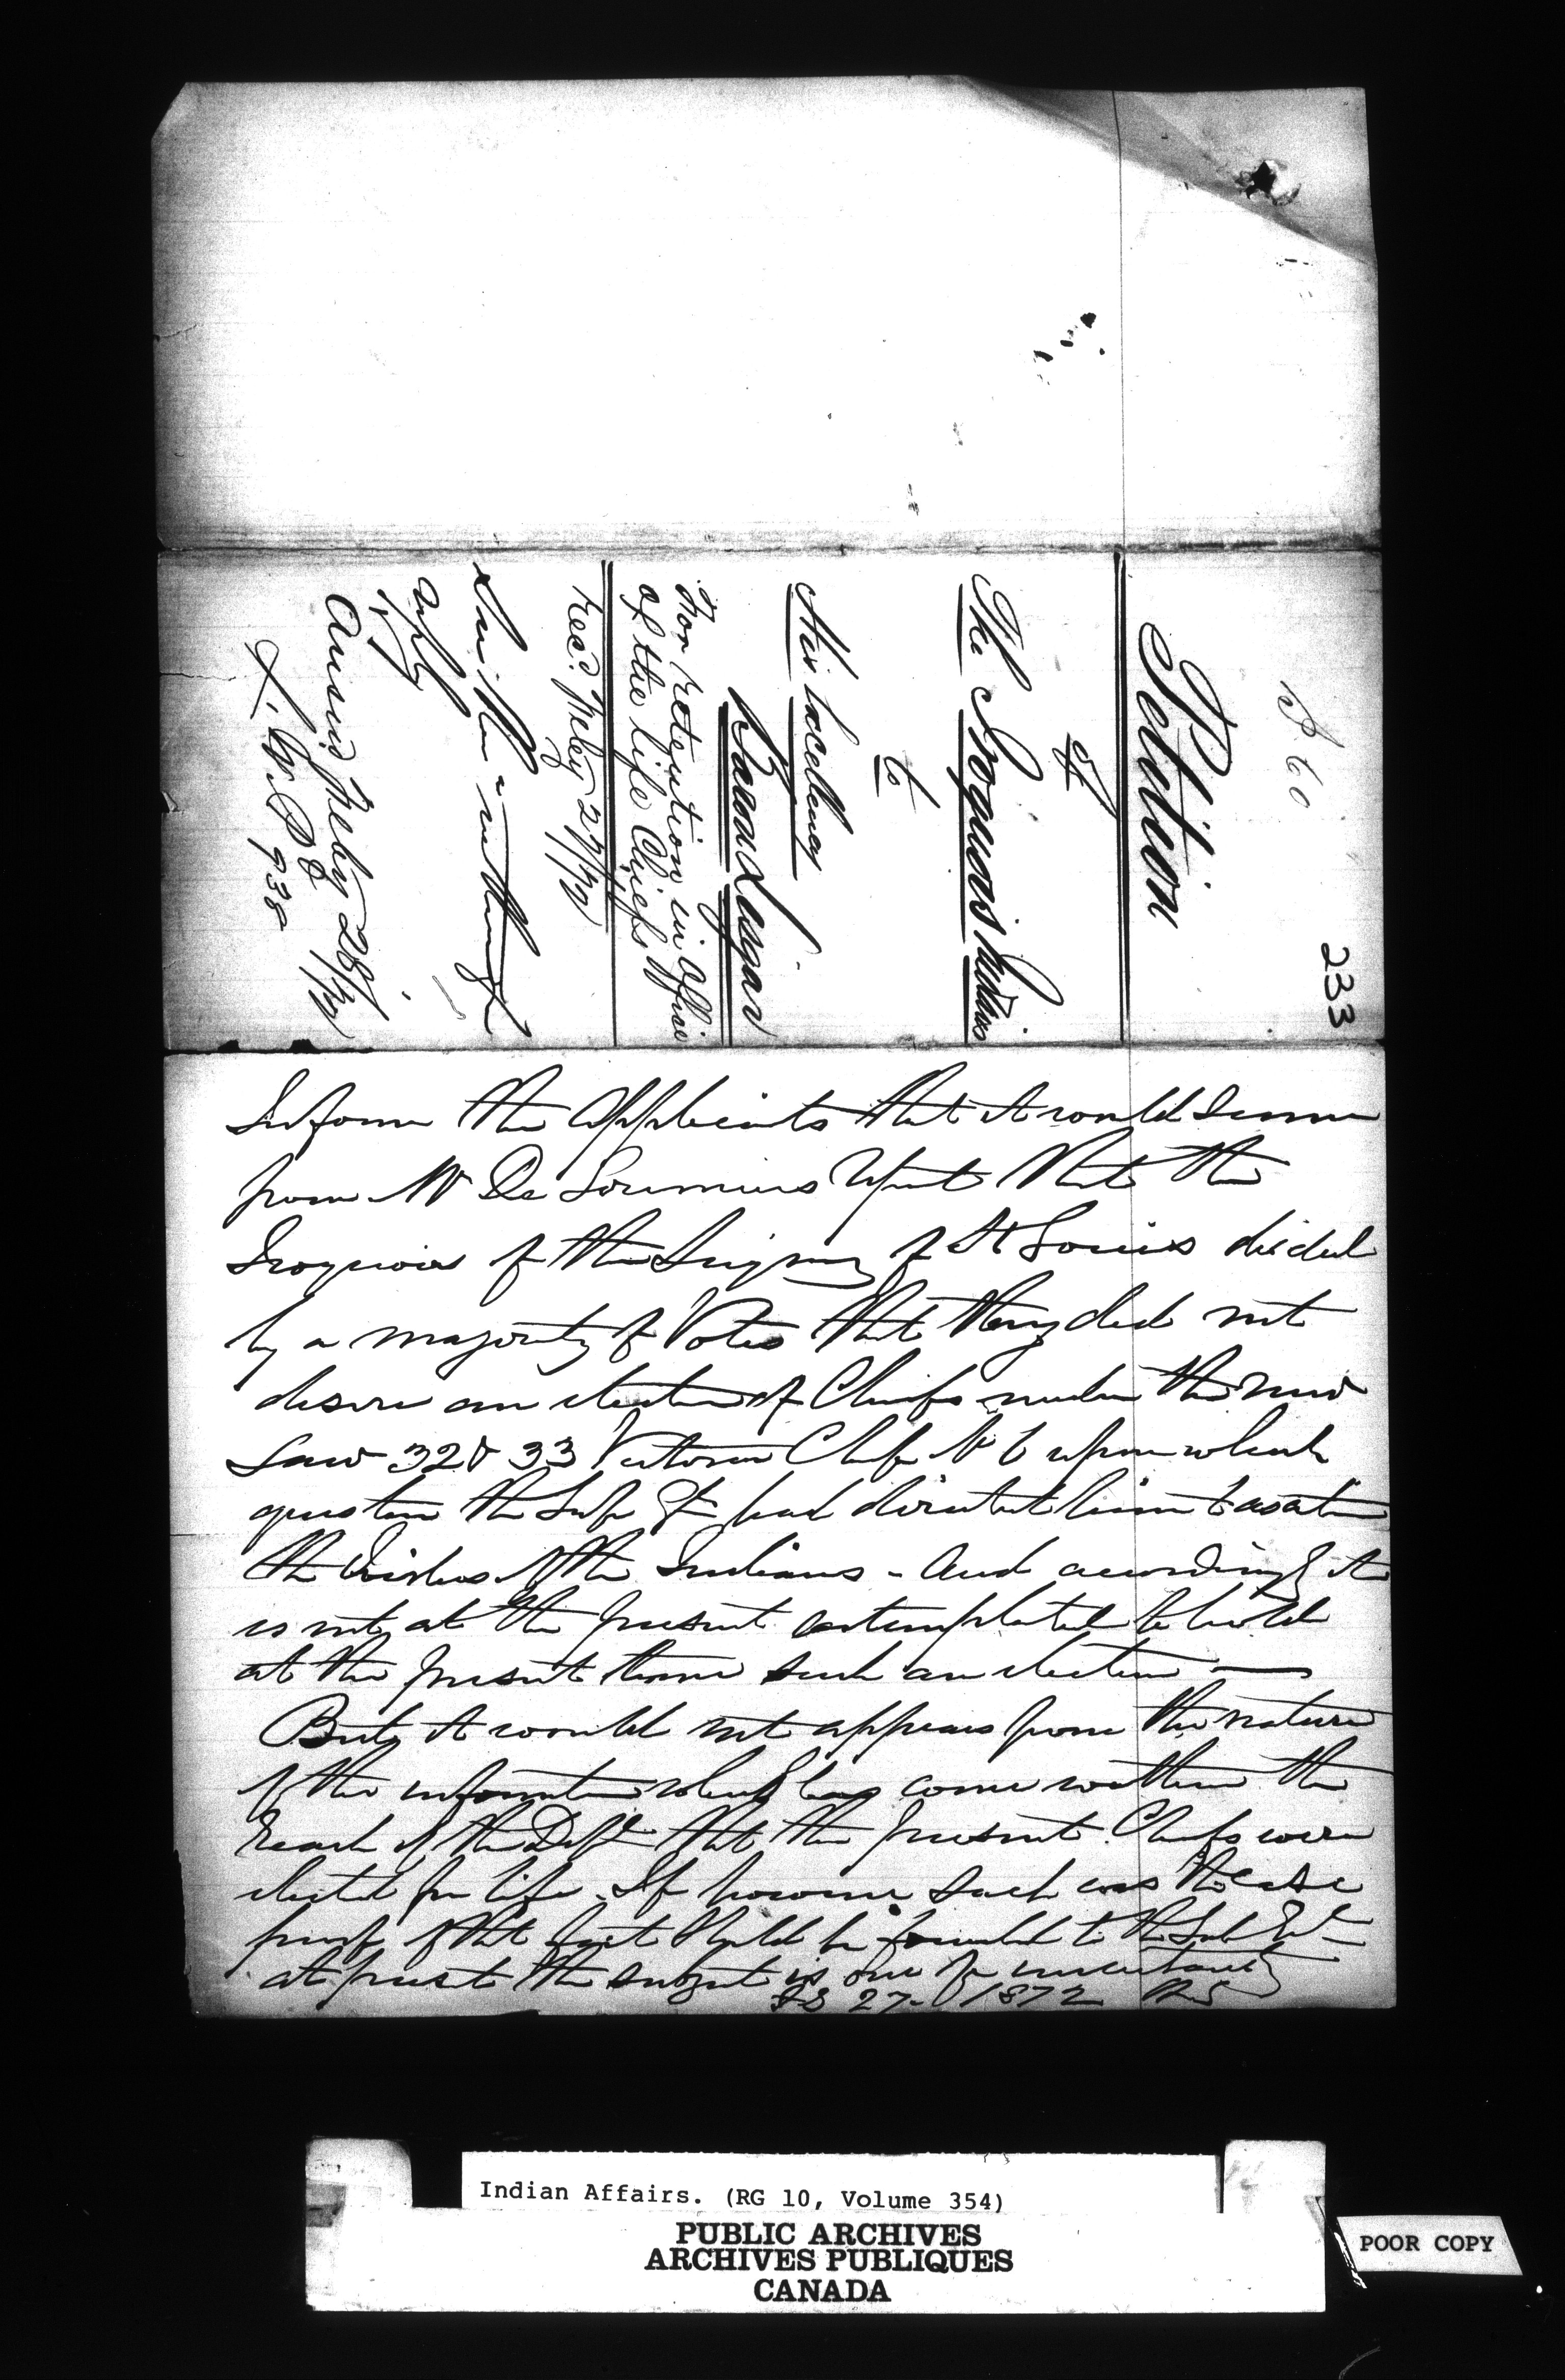 233
No 60
Petition
of
The Iroquois Indians
to
His Excellency
Baron Lisgar
For retention in Office
of the life Chiefs
Recd. Feby 27/72
within
reply
Answd Feby 28/72
L. B. P 8
938
Inform the applicants that it would seem
from Mr De Lorimiers report that the
Iroquois of the Seigny of St Louis decided
by a majority of Votes that they did not
desire an election of Chiefs under the new
Law 32 & 33 Victoria Chap 6 upon which
question the Supt had directed him to ascertain
the wishes of the Indians - And accordingly it
is not at the present contemplated to hold
at the present time such an election —
But it would not appear from the nature
of the information which has come within the
reach of the Dept that the present Chiefs were
elected for life. If however such was the case
proof of that fact should be forwarded to the
at present the subject is one of uncertainty
27 1872
Indian Affairs. (RG 10, Volume 354)
PUBLIC ARCHIVES
ARCHIVES PUBLIQUES
CANADA
POOR COPY